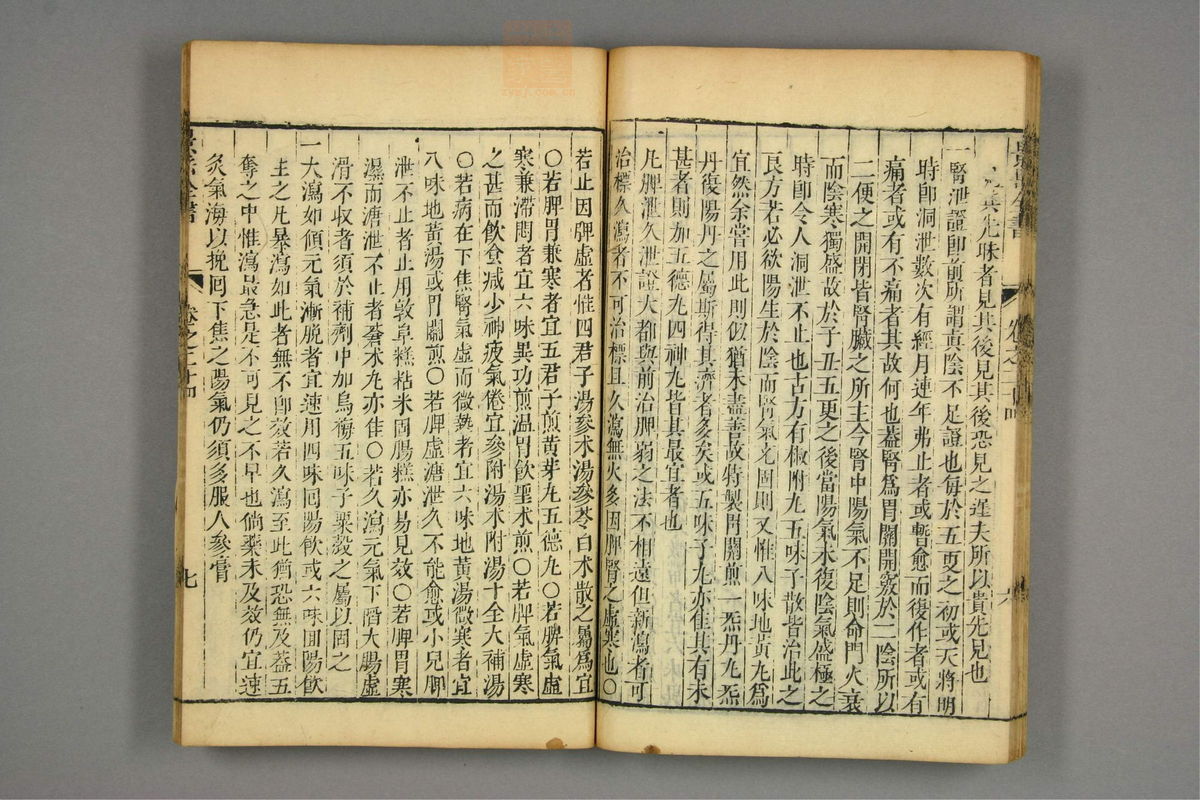 見其後見其後恐見之遲夫所以貴先見也
一腎泄證卽前所謂眞陰不足證也每於五更之初或天將明
時卽洞泄數次有經月連年弗止者或暫愈而復作者或有
痛者或有不痛者其故何也蓋腎爲胃關開竅於二陰所以
二便之開閉皆腎臟之所主今腎中陽氣不足則命門火衰
而陰寒獨盛故於子丑五更之後當陽氣未復陰氣盛極之
時卽令人洞泄不止也古方有椒附丸五味子散皆治此之
良方若必欲陽生於陰而腎氣充固則又惟八味地黃丸爲
宜然余嘗用此則似猶未盡善故特製胃關煎一炁丹九炁
丹復陽丹之屬斯得其濟者多矣或五味子丸亦佳其有未
甚者則加五德丸四神丸皆其最宜者也
凡脾泄久泄證大都與前治脾弱之法不相遠但新瀉者可
治標久瀉者不可治標且久瀉無火多因脾腎之虛寒也〇
若止因脾虛者惟四君子湯參术湯參苓白术散之屬爲宜
〇若脾胃兼寒者宜五君子煎黃芽丸五德丸〇若脾氣虛
寒兼滯悶者宜六味異功煎温胃飮聖术煎〇若脾氣虛寒
之甚而飮食减少神疲氣倦宜參附湯术附湯十全大補湯
〇若病在下焦腎氣虛而微熱者宜六味地黃湯微寒者宜
八味地黃湯或胃關煎〇若脾虛溏泄久不能愈或小兒脾
泄不止者止用敦阜糕粘米固腸糕亦易見效〇若脾胃寒
濕而溏泄不止者蒼术丸亦佳〇若久瀉元氣下陷大腸虛
滑不收者須於補劑中加烏梅五味子粟殻之屬以固之
一大瀉如傾元氣漸脫者宜速用四味囘陽飮或六味囬陽飮
主之凡暴瀉如此者無不卽效若久瀉至此猶恐無及蓋五
奪之中惟瀉最急是不可見之不早也倘藥未及效仍宜速
灸氣海以挽囘下焦之陽氣仍須多服人參膏
全書
卷之二十四
七